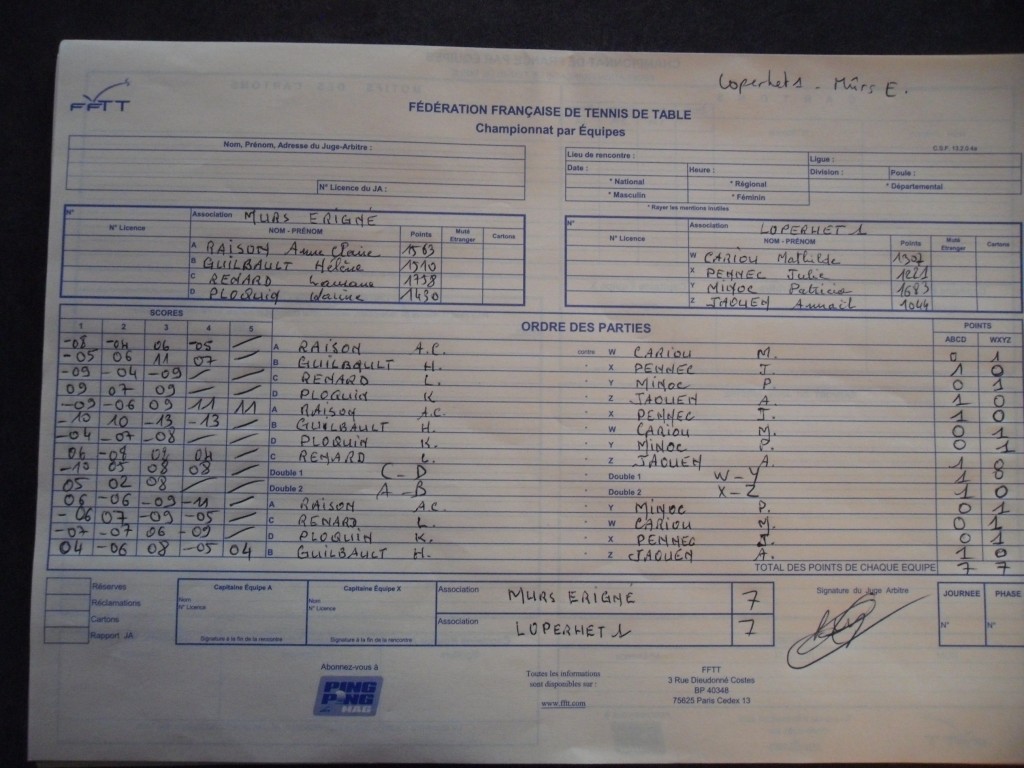 Loperhet 1 - Mûrs E.
FFTT
FÉDÉRATION FRANÇAISE DE TENNIS DE TABLE
Championnat par Équipes
C.S.F. 13.2.0.4a
Nom, Prénom, Adresse du Juge-Arbitre :
N° Licence du JA :
Lieu de rencontre : Ligue :
Date : Heure : Division : Poule :
* National * Régional * Départemental
* Masculin * Féminin
* Rayer les mentions inutiles
N° Association MURS ERIGNÉ
N° Licence NOM - PRÉNOM Points Muté Etranger Cartons
A RAISON Anne Claire 1563
B GUILBAULT Hélène 1310
C RENARD 1738
D PLOQUIN Karine 1430
N° Association LOPERHET 1
N° Licence NOM - PRÉNOM Points Muté Etranger Cartons
W CARIOU Mathilde 1307
X PENNEC Julie 1221
Y MINOC Patricia 1683
Z JAOUEN Annaïl 1044
SCORES ORDRE DES PARTIES POINTS
1 2 3 4 5 ABCD WXYZ
-08 -04 06 -05 A RAISON A.C. contre W CARIOU M. 0 1
-05 06 11 07 B GUILBAULT H. X PENNEC J. 1 0
-09 -04 -09 C RENARD L. Y MINOC P. 0 1
09 07 09 D PLOQUIN K Z JAOUEN A. 1 0
-09 -06 09 11 11 A RAISON A.C. X PENNEC J. 1 0
-10 10 -13 -13 B GUILBAULT H. W CARIOU M. 0 1
-04 -07 -08 D PLOQUIN K. Y MINOC P. 0 1
06 -08 08 04 C RENARD L. Z JAOUEN A. 1 0
-10 05 08 08 Double 1 C-D Double 1 W-Y 1 0
05 02 08 Double 2 A-B Double 2 X-Z 1 0
06 -06 -09 -11 A RAISON A.C. Y MINOC P. 0 1
-06 07 -09 -05 C RENARD L. W CARIOU M. 0 1
-07 -07 06 -09 D PLOQUIN K. X PENNEC J. 0 1
04 -06 08 -05 04 B GUILBAULT H. Z JAOUEN A. 1 0
TOTAL DES POINTS DE CHAQUE EQUIPE 7 7
Réserves
Réclamations
Cartons
Rapport JA
Capitaine Équipe A
Nom
N° Licence
Signature à la fin de la rencontre
Capitaine Équipe X
Nom
N° Licence
Signature à la fin de la rencontre
Association MURS ERIGNÉ 7
Association LOPERHET 1 7
Signature du Juge Arbitre
JOURNEE PHASE
N° N°
Abonnez-vous à
PING PONG MAG
Toutes les informations
sont disponibles sur :
www.fftt.com
FFTT
3 Rue Dieudonné Costes
BP 40348
75625 Paris Cedex 13